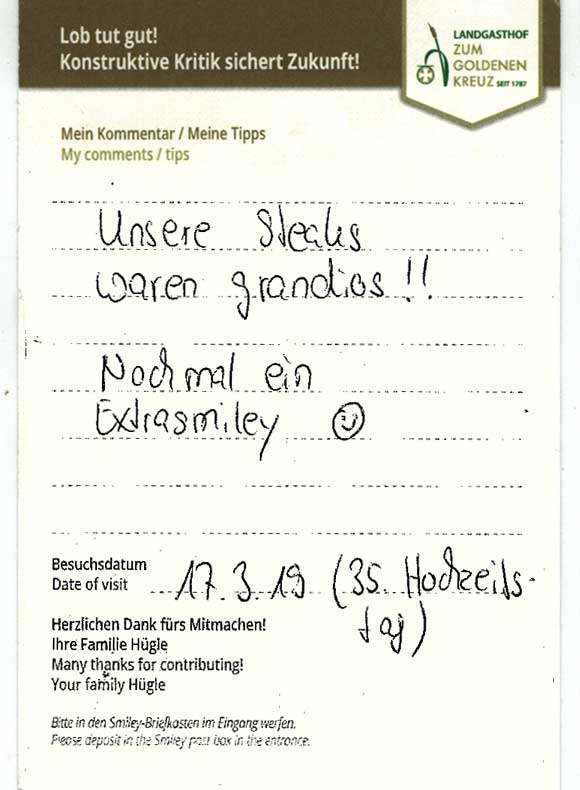 Lob tut gut!
Konstruktive Kritik sichert Zukunft!
LANDGASTHOF
ZUM
GOLDENEN
KREUZ SEIT 1787
Mein Kommentar / Meine Tipps
My comments / tips
Unsere Steaks
waren grandios!!
Nochmal ein
Extrasmiley ☺
Besuchsdatum
Date of visit 17.3.19 (35. Hochzeits-
tag)
Herzlichen Dank fürs Mitmachen!
Ihre Familie Hügle
Many thanks for contributing!
Your family Hügle
Bitte in den Smiley-Briefkasten im Eingang werfen.
Please deposit in the Smiley post box in the entrance.